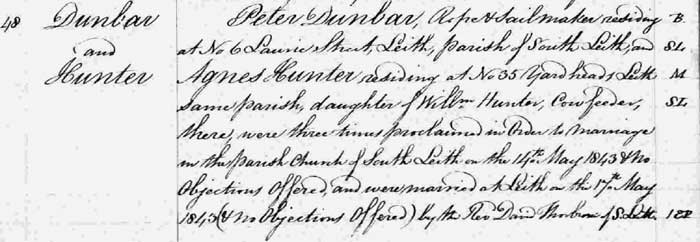 48 Dunbar Peter Dunbar, Rope & Sail maker residing B.
and at No 6 Laurie Street, Leith, parish of South Leith, and SL
Hunter Agnes Hunter residing at No 35 Yardheads Leith M
same parish, daughter of Willm Hunter, Cowfeeder, SL
there, were three times proclaimed in Order to marriage
in the parish Church of South Leith on the 14th May 1843 & No
Objections Offered, and were, married at Leith on the 17th May
1843 (& no Objections Offered) by the Revd David Thorburn of S. Leith